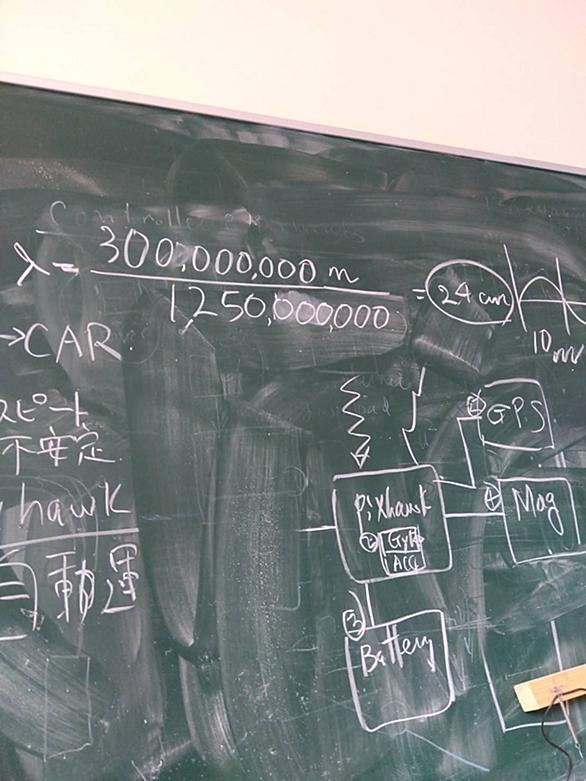 λ = 300,000,000 m
1,250,000,000
= 24 cm
10 m
→CAR
スピード
不安定
hawk
自動運
Pixhawk
Gyro
Acc
GPS
④ Mag
③
Battery